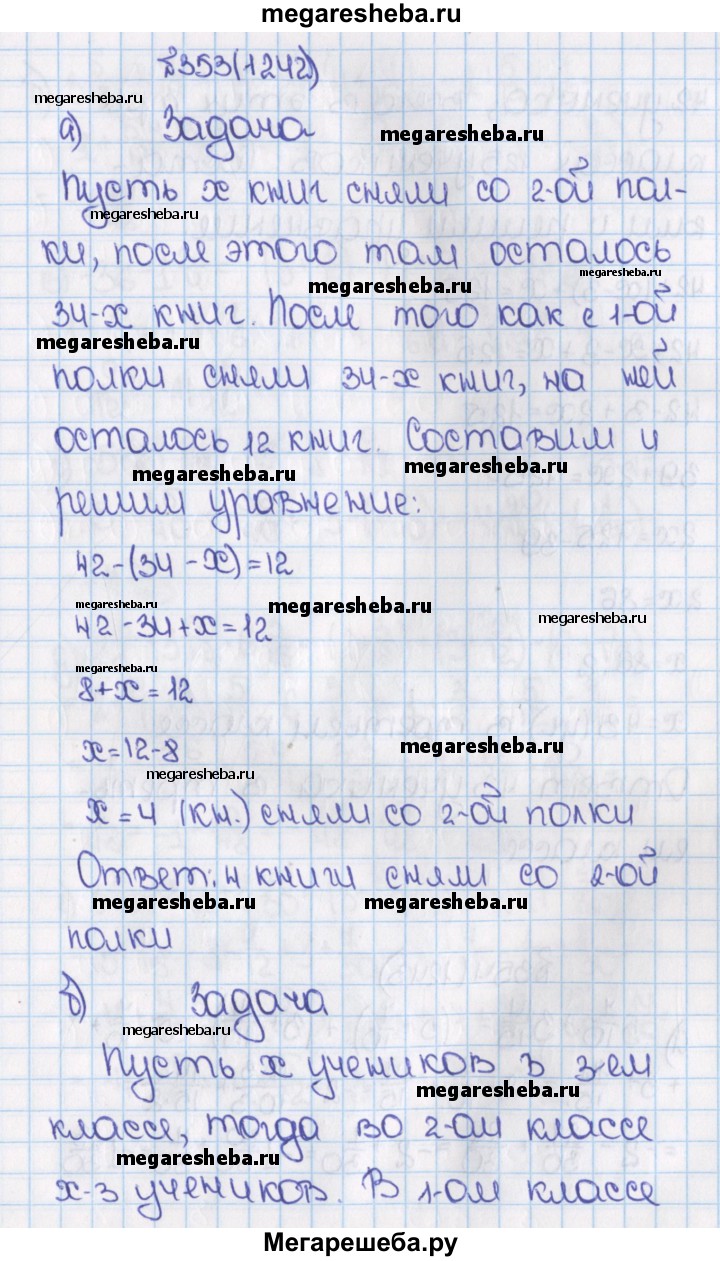 megaresheba.ru
№353(1242)
megaresheba.ru
а) Задача megaresheba.ru
Пусть x книг сняли со 2-ой пол-
megaresheba.ru
ки, после этого там осталось
megaresheba.ru megaresheba.ru
34-x книг. После того как с 1-ой
megaresheba.ru
полки сняли 34-x книг, на ней
осталось 12 книг. Составим и
megaresheba.ru megaresheba.ru
решим уравнение:
42-(34-x)=12
megaresheba.ru megaresheba.ru megaresheba.ru
42-34+x=12
megaresheba.ru
8+x=12
x=12-8 megaresheba.ru
megaresheba.ru
x=4 (кн.) сняли со 2-ой полки
Ответ: 4 книги сняли со 2-ой
megaresheba.ru megaresheba.ru
полки
б) Задача
megaresheba.ru
Пусть x учеников в 3-ем
megaresheba.ru
классе, тогда во 2-ом классе
megaresheba.ru
x-3 учеников. В 1-ом классе
Мегарешеба.ру